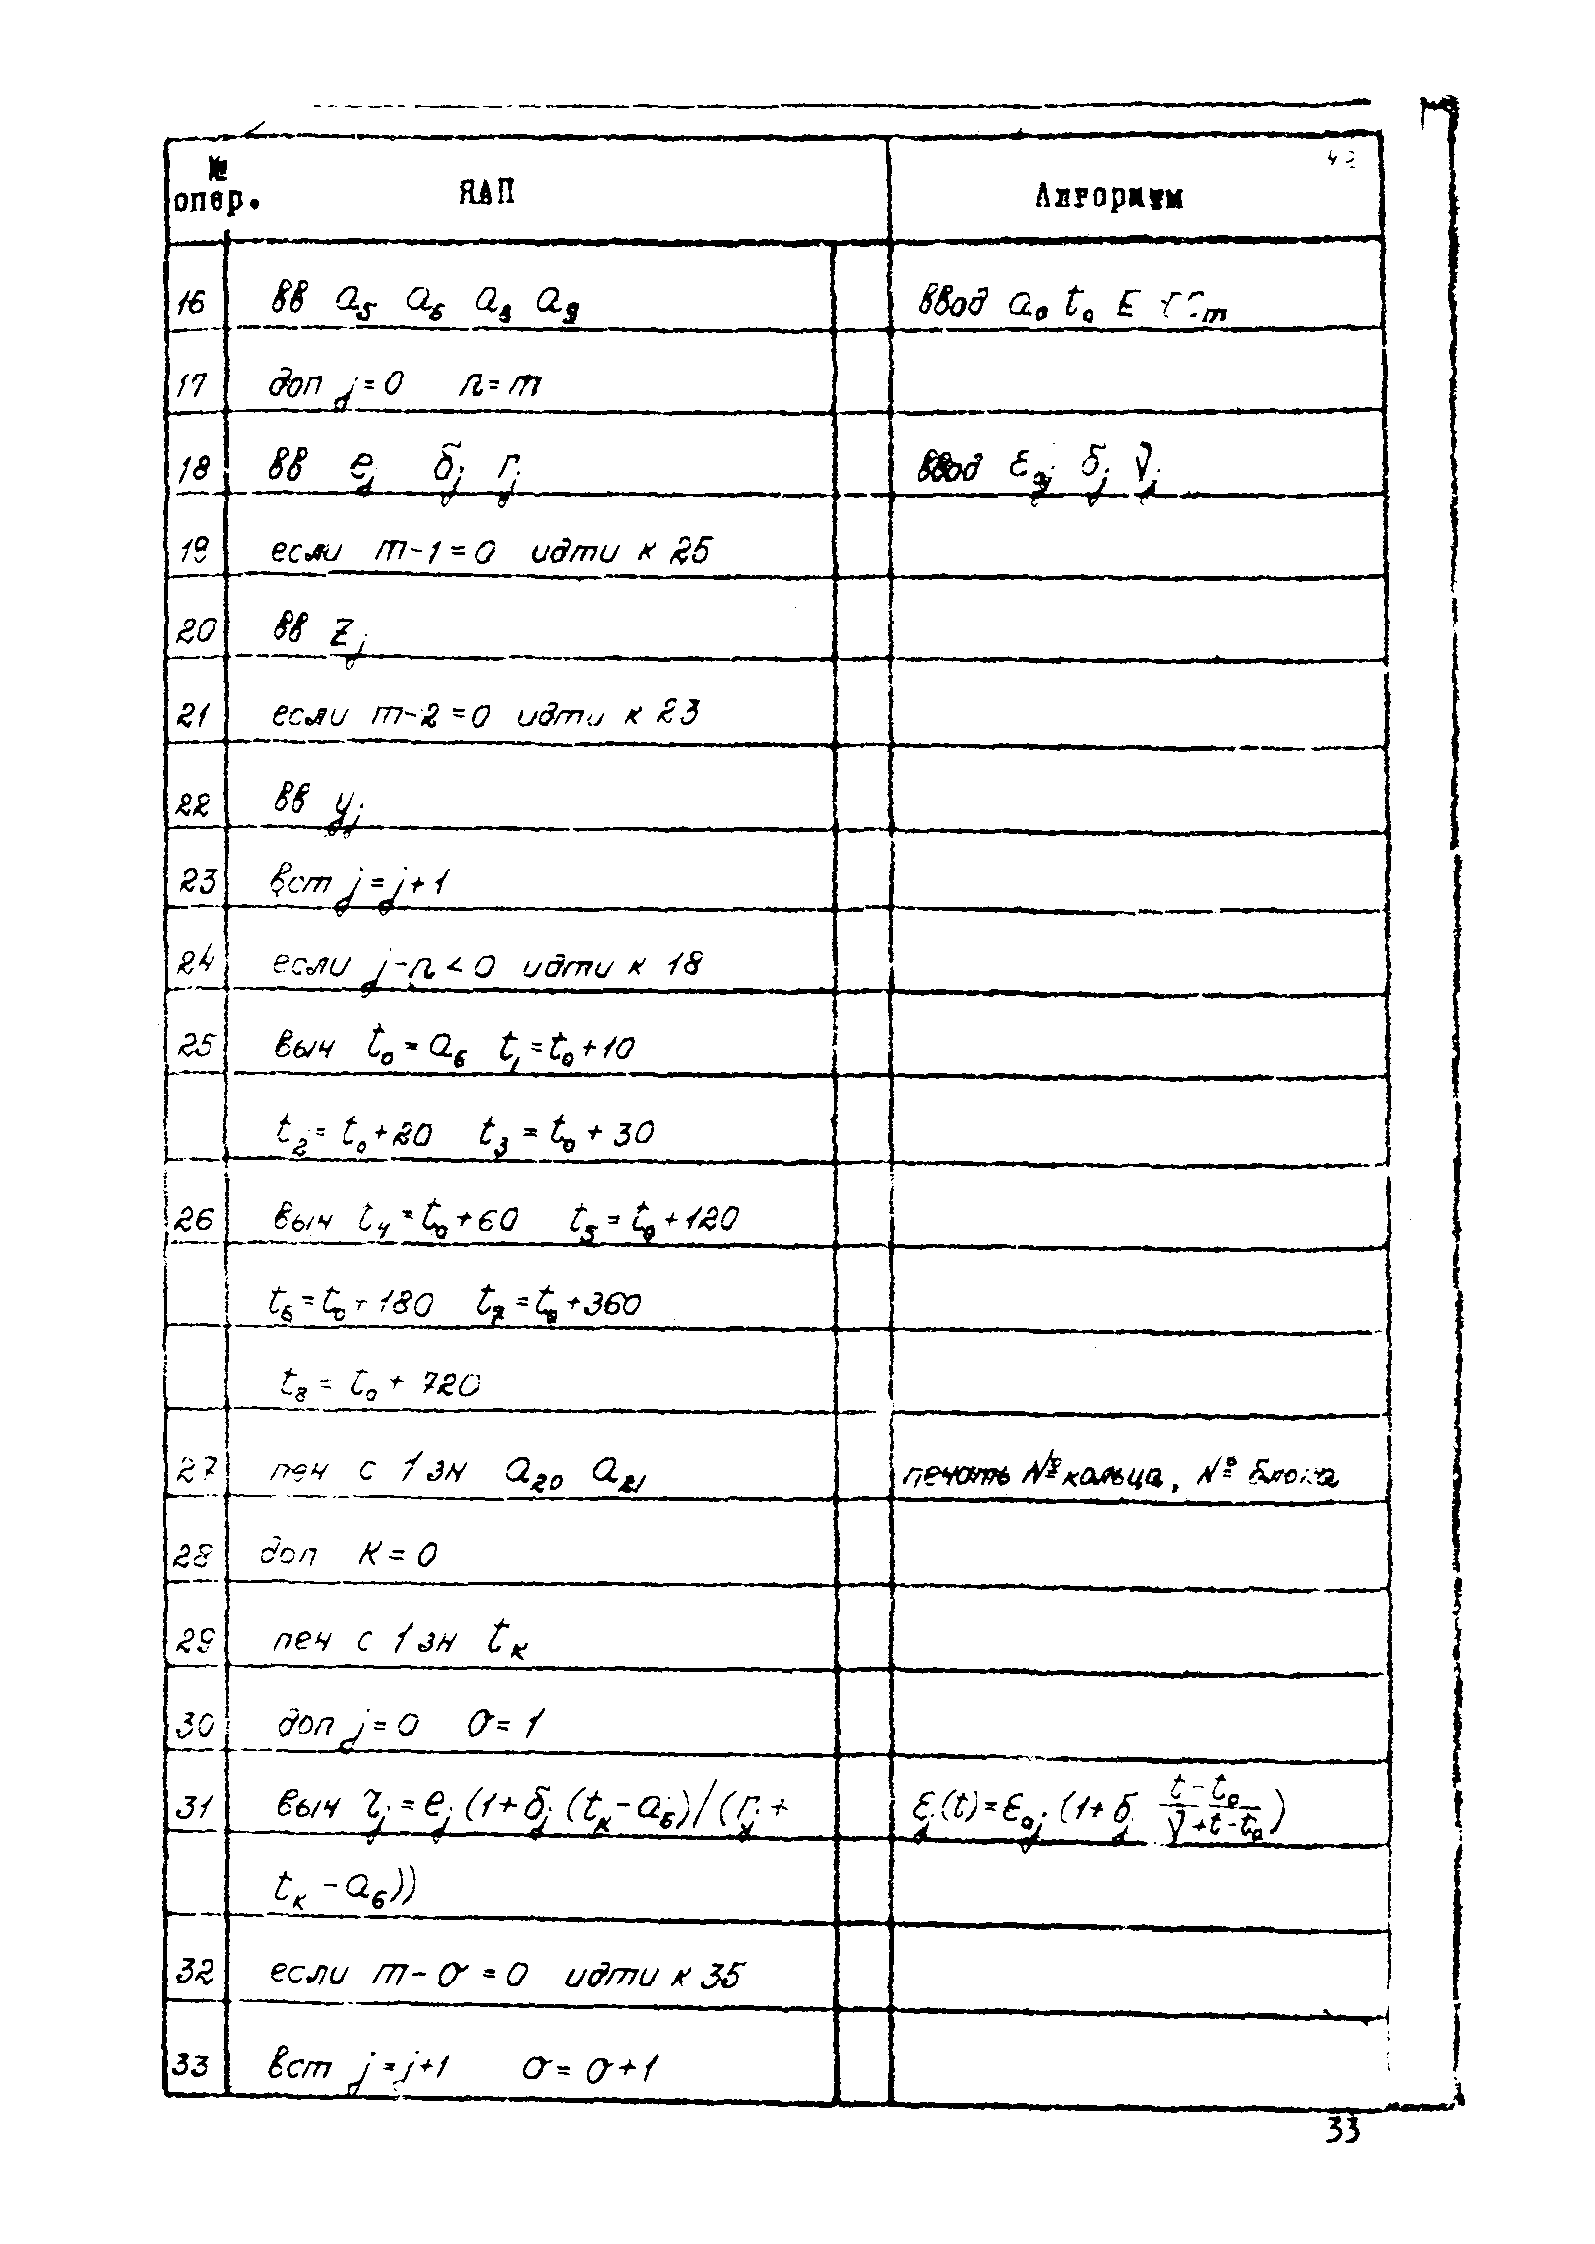 42
№ опер. ЯАП Алгоритм
16 вв a₅ a₆ a₈ a₉ ввод a₀ t₀ E
17 доп j=0 n=m
18 вв eⱼ бⱼ гⱼ ввод ε₀ⱼ бⱼ γⱼ
19 если m-1=0 идти к 25
20 вв zⱼ
21 если m-2=0 идти к 23
22 вв yⱼ
23 вст j=j+1
24 если j-n<0 идти к 18
25 выч t₀=a₆ t₁=t₀+10
t₂=t₀+20 t₃=t₀+30
26 выч t₄=t₀+60 t₅=t₀+120
t₆=t₀+180 t₇=t₀+360
t₈=t₀+720
27 печ с 1 зн a₂₀ a₂₁ печать № кольца, № блока
28 доп к=0
29 печ с 1 зн tк
30 доп j=0 σ=1
31 выч τⱼ=eⱼ(1+бⱼ(tк-a₆)/(гⱼ+ εⱼ(t)=ε₀ⱼ(1+бⱼ (t-t₀)/(γ+t-t₀))
tк-a₆))
32 если m-σ=0 идти к 35
33 вст j=j+1 σ=σ+1
33